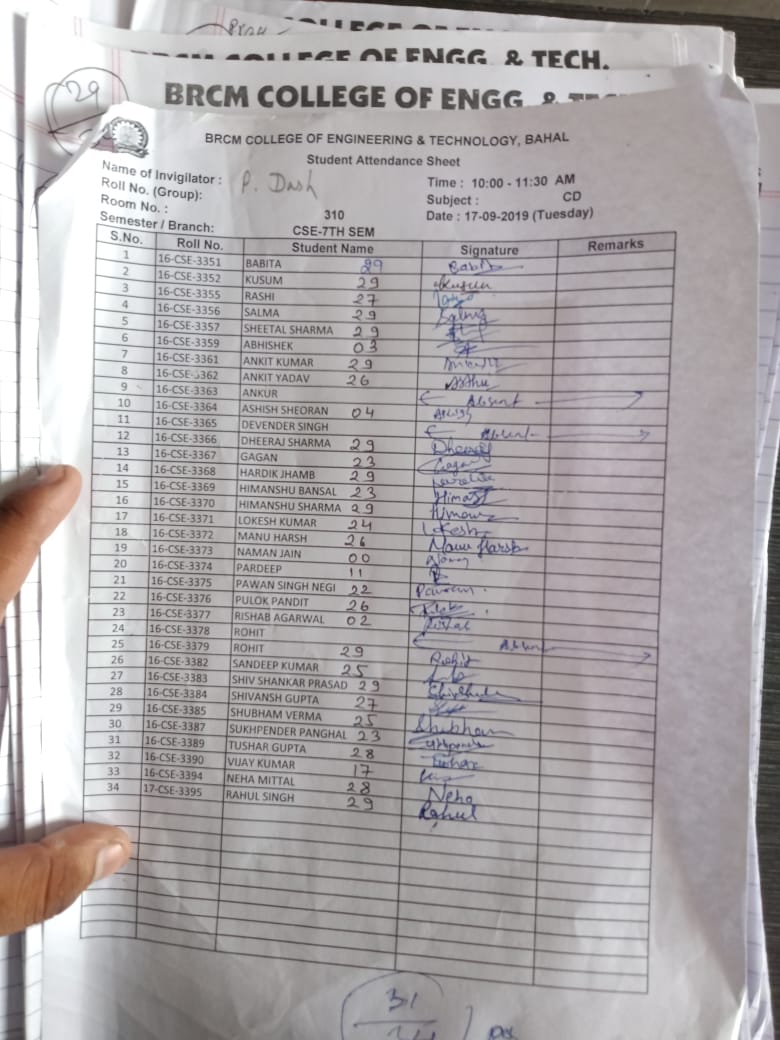 LLEGE OF
COLLEGE OF ENGG. & TECH.
29
BRCM COLLEGE OF ENGG. &
BRCM COLLEGE OF ENGINEERING & TECHNOLOGY, BAHAL
Student Attendance Sheet
Name of Invigilator : P. Dash Time : 10:00 - 11:30 AM
Roll No. (Group): Subject : CD
Room No. : 310 Date : 17-09-2019 (Tuesday)
Semester / Branch: CSE-7TH SEM
S.No. Roll No. Student Name Signature Remarks
1 16-CSE-3351 BABITA 29
2 16-CSE-3352 KUSUM 29 Kusum
3 16-CSE-3355 RASHI 27
4 16-CSE-3356 SALMA 29 Salma
5 16-CSE-3357 SHEETAL SHARMA 29
6 16-CSE-3359 ABHISHEK 03
7 16-CSE-3361 ANKIT KUMAR 29
8 16-CSE-3362 ANKIT YADAV 26
9 16-CSE-3363 ANKUR Absent
10 16-CSE-3364 ASHISH SHEORAN 04
11 16-CSE-3365 DEVENDER SINGH Absent
12 16-CSE-3366 DHEERAJ SHARMA 29 Dheeraj
13 16-CSE-3367 GAGAN 23 Gagan
14 16-CSE-3368 HARDIK JHAMB 29
15 16-CSE-3369 HIMANSHU BANSAL 23
16 16-CSE-3370 HIMANSHU SHARMA 29
17 16-CSE-3371 LOKESH KUMAR 24 Lokesh
18 16-CSE-3372 MANU HARSH 26 Manu Harsh
19 16-CSE-3373 NAMAN JAIN 00
20 16-CSE-3374 PARDEEP 11
21 16-CSE-3375 PAWAN SINGH NEGI 22
22 16-CSE-3376 PULOK PANDIT 26
23 16-CSE-3377 RISHAB AGARWAL 02
24 16-CSE-3378 ROHIT Absent
25 16-CSE-3379 ROHIT 29 Rohit
26 16-CSE-3382 SANDEEP KUMAR 25
27 16-CSE-3383 SHIV SHANKAR PRASAD 29
28 16-CSE-3384 SHIVANSH GUPTA 27
29 16-CSE-3385 SHUBHAM VERMA 25 Shubham
30 16-CSE-3387 SUKHPENDER PANGHAL 23
31 16-CSE-3389 TUSHAR GUPTA 28 Tushar
32 16-CSE-3390 VIJAY KUMAR 17
33 16-CSE-3394 NEHA MITTAL 28 Neha
34 17-CSE-3395 RAHUL SINGH 29 Rahul
31
34